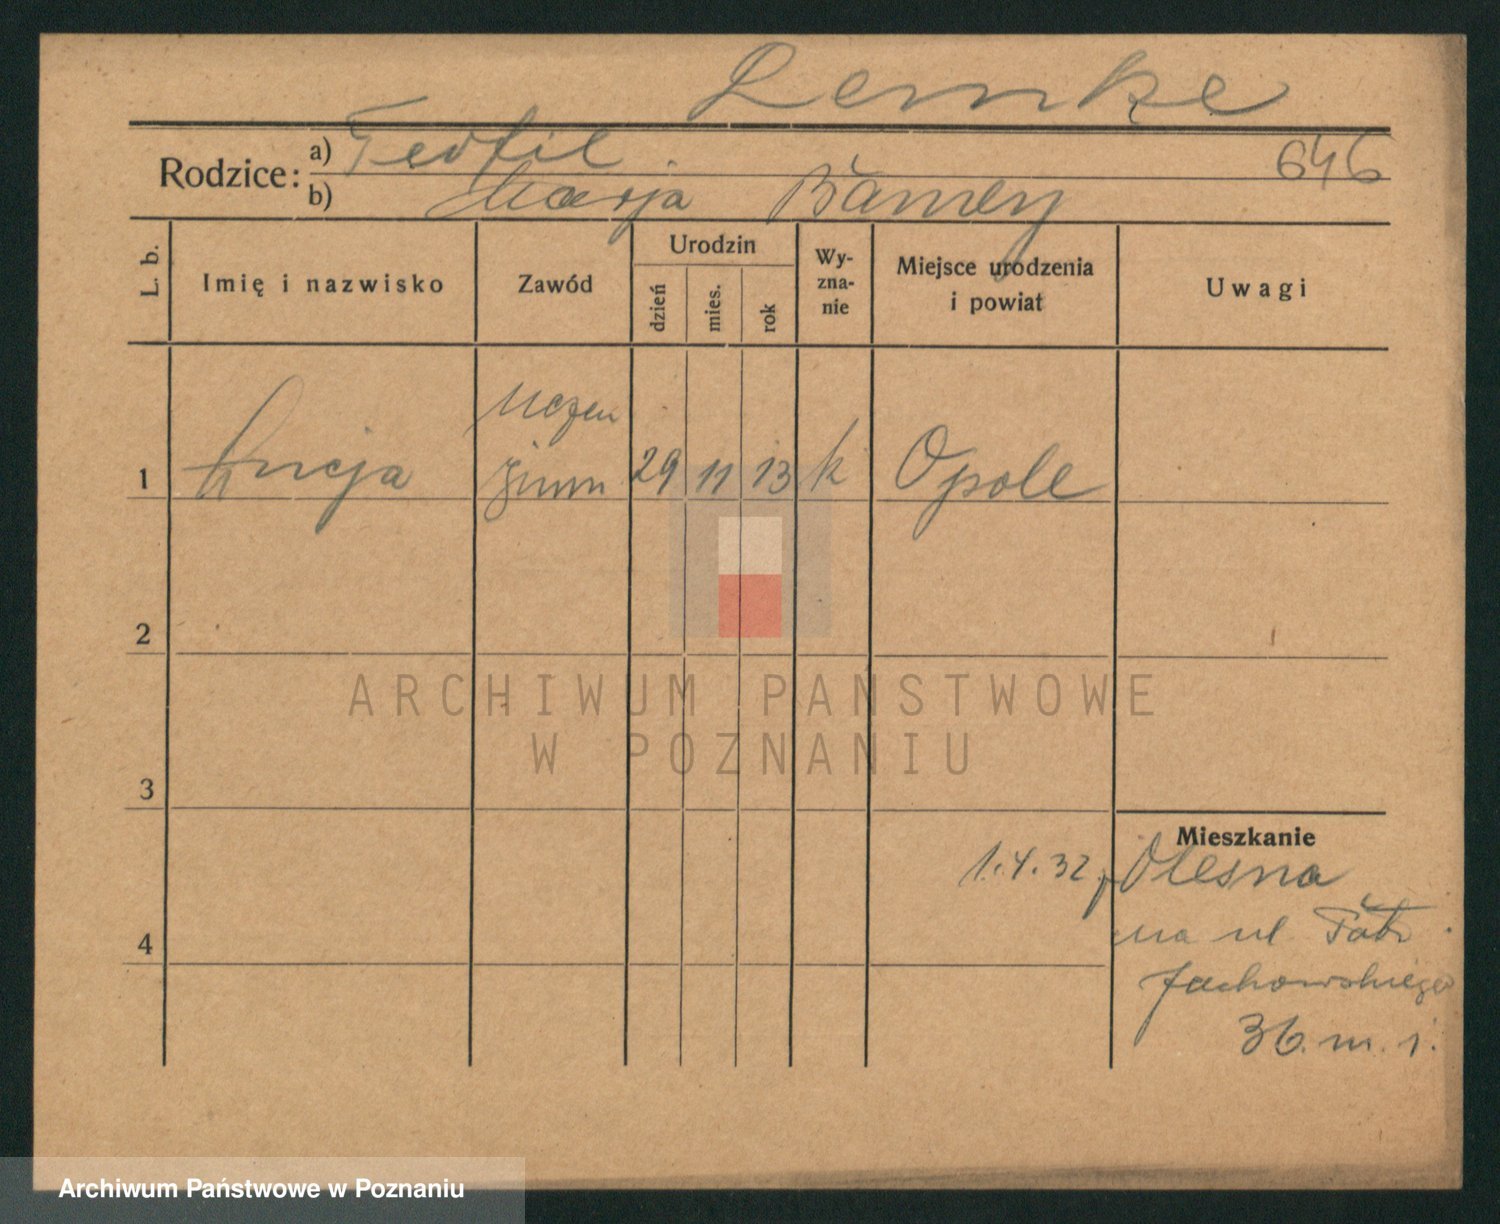 Lemke
Rodzice: a) Teofil 646
b) Marja
L. b. Imię i nazwisko Zawód Urodzin dzień mies. rok Wy-zna-nie Miejsce urodzenia i powiat Uwagi
uczen
1 Łucja gimn 29 11 13 k Opole
2
ARCHIWUM PAŃSTWOWE
W POZNANIU
3
Mieszkanie
1.4.32. Olesna
na ul
4
36. m. 1.
Archiwum Państwowe w Poznaniu